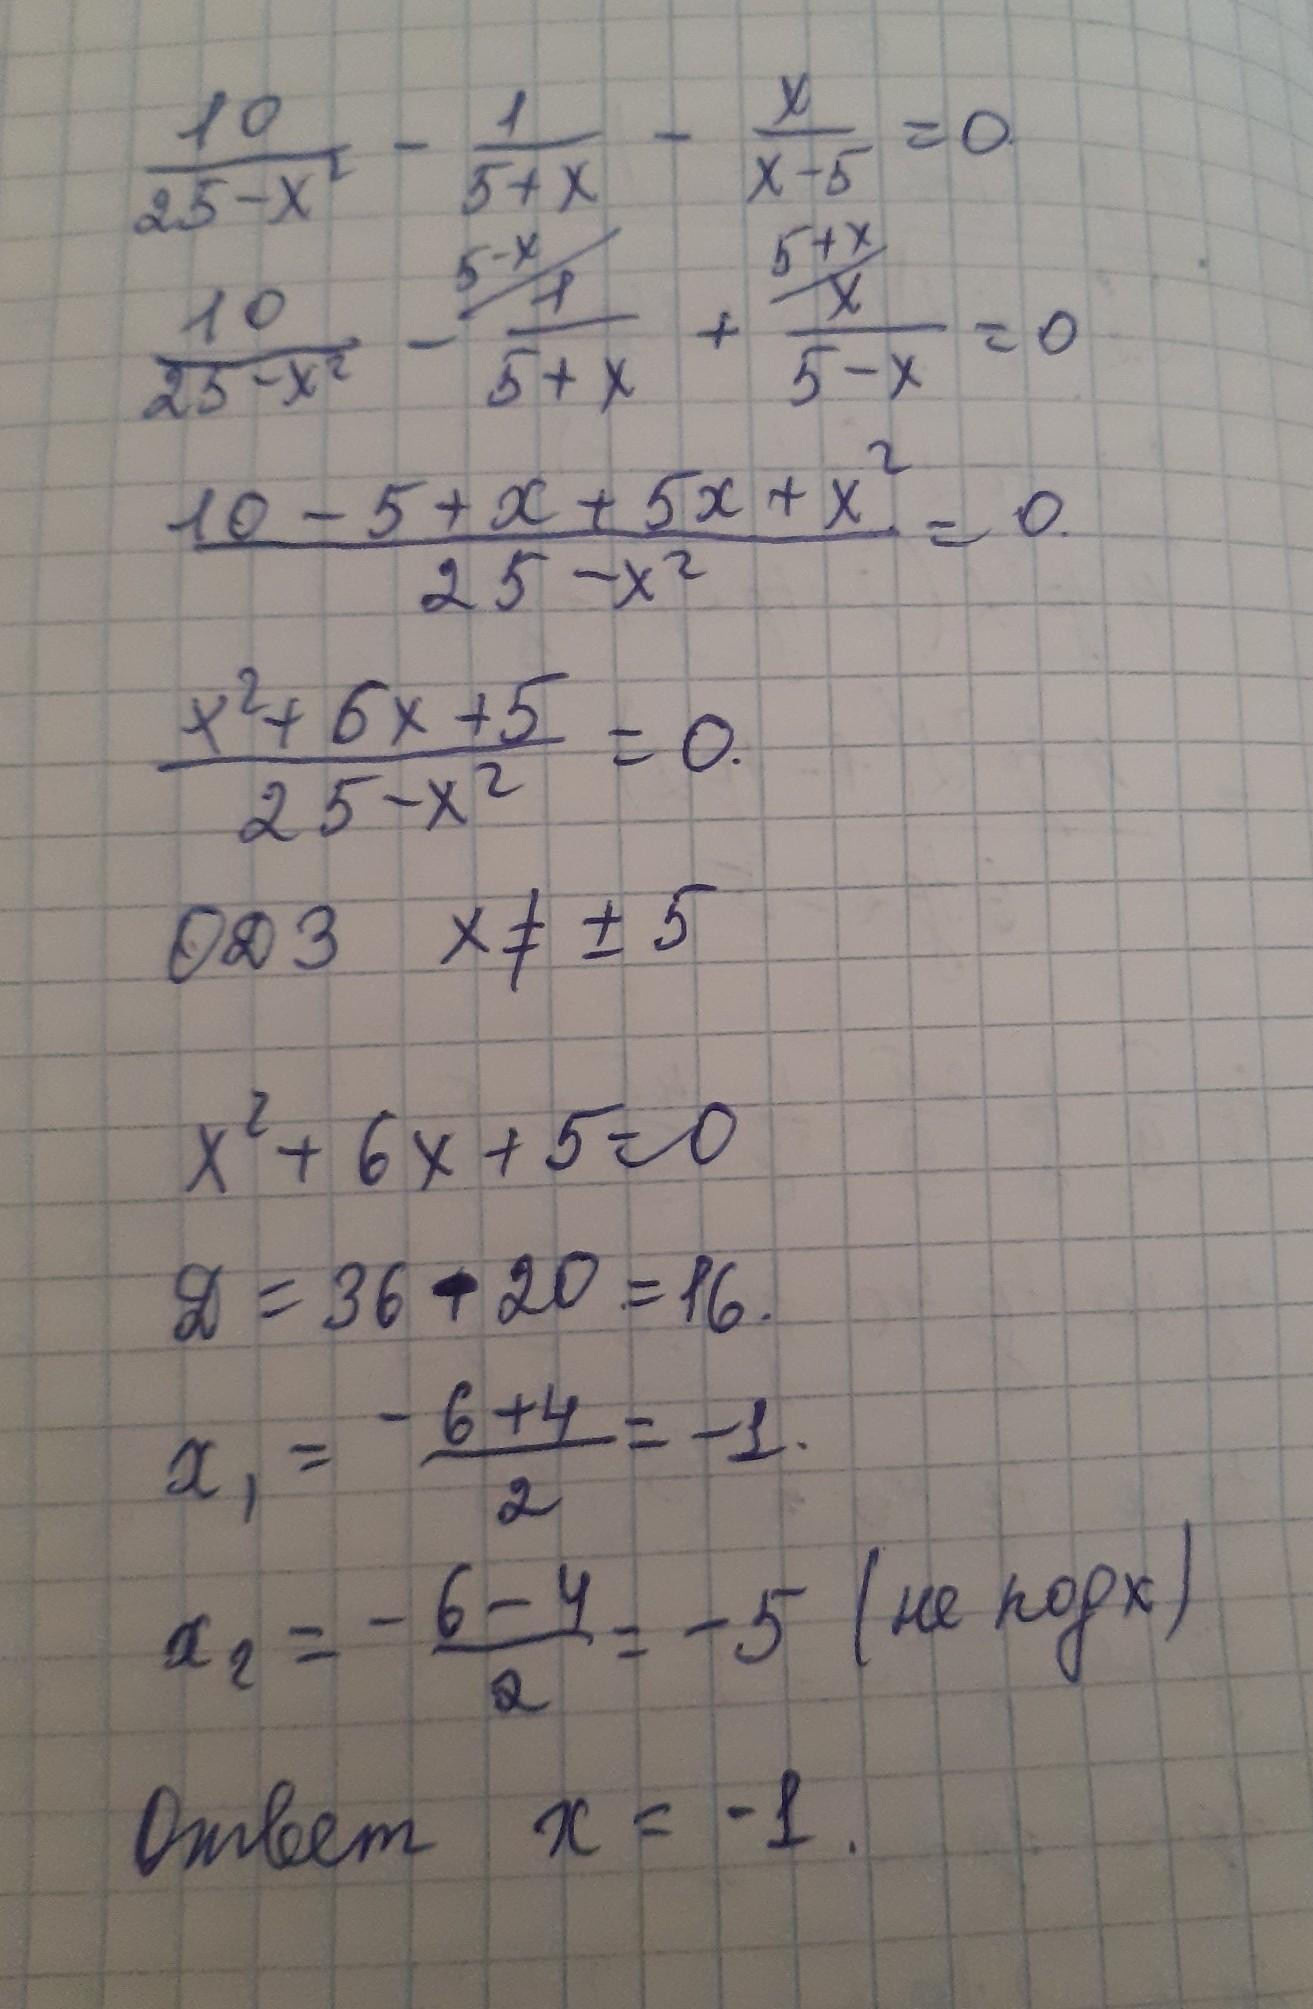 10/(25-x²) - 1/(5+x) - x/(x-5) = 0.
10/(25-x²) - 5-x/ 1/(5+x) + 5+x/ x/(5-x) = 0
(10-5+x+5x+x²)/(25-x²) = 0.
(x²+6x+5)/(25-x²) = 0.
ОДЗ x ≠ ± 5
x²+6x+5=0
Д = 36 - 20 = 16.
x₁ = (-6+4)/2 = -1.
x₂ = (-6-4)/2 = -5 (не подх)
Ответ x = -1.